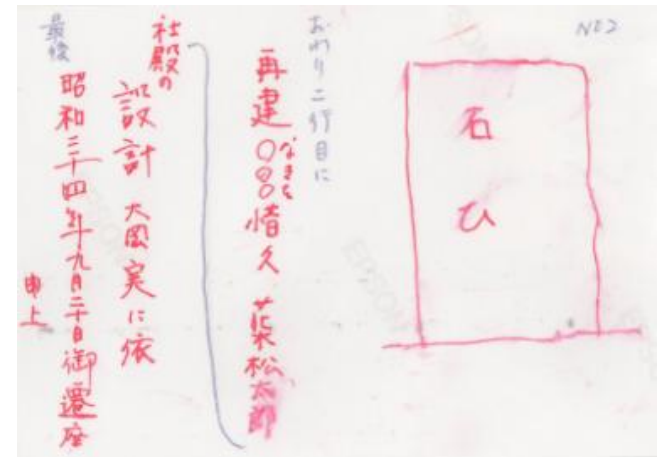 NO2
石
ひ
おわり二行目に
再建〇〇〇惰久 柴松太郎
なきを
社殿の
設計 大岡実に依
最後
昭和三十四年九月二十日御遷座
申上